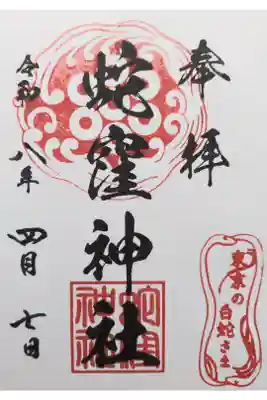 奉拝
蛇窪神社
令和八年
四月七日
蛇窪神社
東京の
白蛇さま